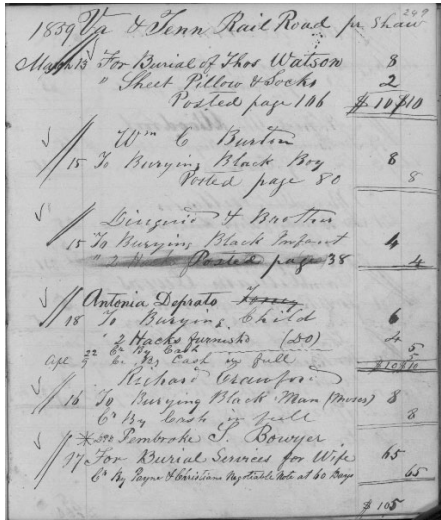 249
1859 Va & Tenn Rail Road pr Shaw
March 13 For Burial of Thos Watson 8
" Sheet Pillow & Socks 2
Posted page 106 $10 $10
Wm C Burton
15 To Burying Black Boy 8
Posted page 80 8
Dinguid & Brother
15 To Burying Black Infant 4
Posted page 38 4
Antonia Deprato
18 To Burying Child 6
" 2 Hacks furnished (DO) 4
22 Cr By Cash 5
Apl 9 Cr By Cash in full 5
$10 $10
Richard Crawford
16 To Burying Black Man (Moses) 8
Cr By Cash in full 8
Pembroke S. Bowyer
17 For Burial Services for Wife 65
Cr By Payne & Christians Negotiable Note at 60 Days 65
$105